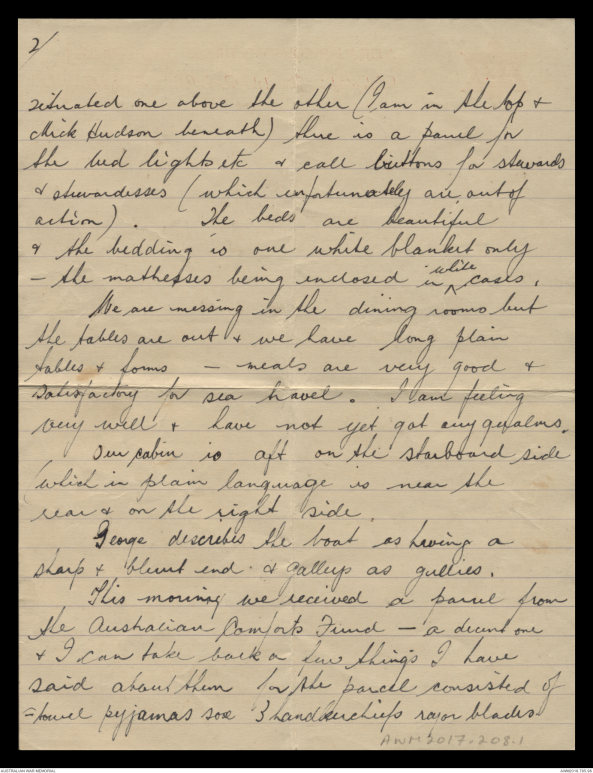 2/
situated one above the other (I am in the top &
Mick Hudson beneath) there is a panel for
the bed lights etc & call buttons for stewards
& stewardesses (which unfortunately are out of
action). The beds are beautiful
& the bedding is one white blanket only
- the mattresses being enclosed in white cases.
We are messing in the dining rooms but
the tables are out & we have long plain
tables & forms - meals are very good &
satisfactory for sea travel. I am feeling
very well & have not yet got any qualms.
Our cabin is aft on the starboard side
(which in plain language is near the
rear & on the right side.
George describes the boat as having a
sharp & blunt end & galleys as gullies.
This morning we received a parcel from
the Australian Comforts Fund - a decent one
& I can take back a few things I have
said about them for the parcel consisted of
- towel pyjamas sox 3 handkerchiefs razor blades
AWM2017.208.1
AUSTRALIAN WAR MEMORIAL